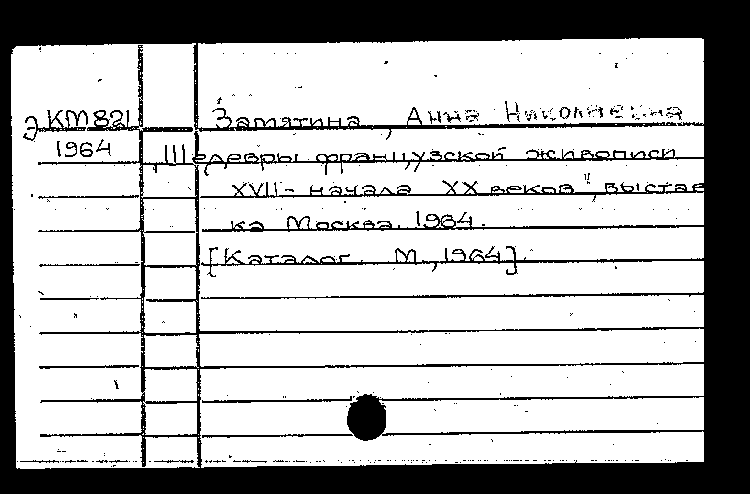 Э КМ821 Заматина, Анна Николаевна
1964 „Шедевры французской живописи
XVII - начала XX веков", выстав
ка Москва. 1964.
[Каталог. М., 1964].